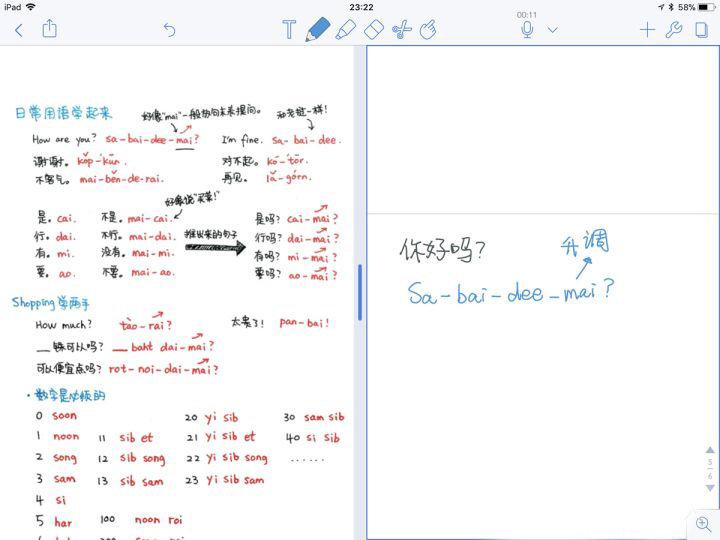 iPad
23:22
58%
00:11
T
日常用语学起来
好像"mai"一般放句末来提问。
和老挝一样!
How are you? sa-bai-dee-mai?
I'm fine. sa-bai-dee.
谢谢。kŏp-kŭn.
对不起。kŏ-tŏr.
不客气。mai-bĕn-de-rai.
再见。lā-górn.
好像说"买菜!"
是。cai. 不是。mai-cai. 是吗? cai-mai?
行。dai. 不行。mai-dai. 推出来的句子 行吗? dai-mai?
有。mi. 没有。mai-mi. 有吗? mi-mai?
要。ao. 不要。mai-ao. 要吗? ao-mai?
Shopping学两手
How much? tào-rai? 太贵了! pan-bai!
__铢可以吗? __ baht dai-mai?
可以便宜点吗? rot-noi-dai-mai?
·数字是必须的
0 soon 20 yi sib 30 sam sib
1 noon 11 sib et 21 yi sib et 40 si sib
2 song 12 sib song 22 yi sib song ......
3 sam 13 sib sam 23 yi sib sam
4 si
5 har 100 noon roi
你好吗?
升调
Sa-bai-dee-mai?
5
6